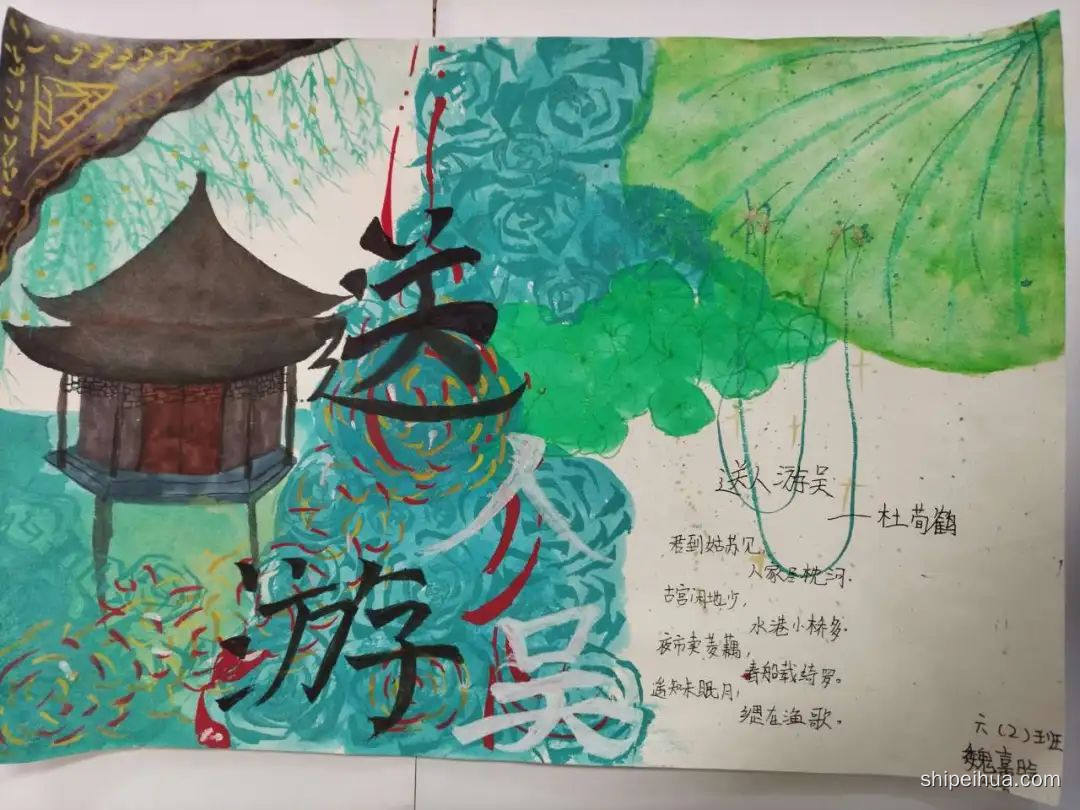 送
人
游
吴
送人游吴
——杜荀鹤
君到姑苏见,
人家尽枕河.
古宫闲地少,
水港小桥多.
夜市卖菱藕,
春船载绮罗。
遥知未眠月,
思在渔歌。
六(2)班
魏
shipeihua.com